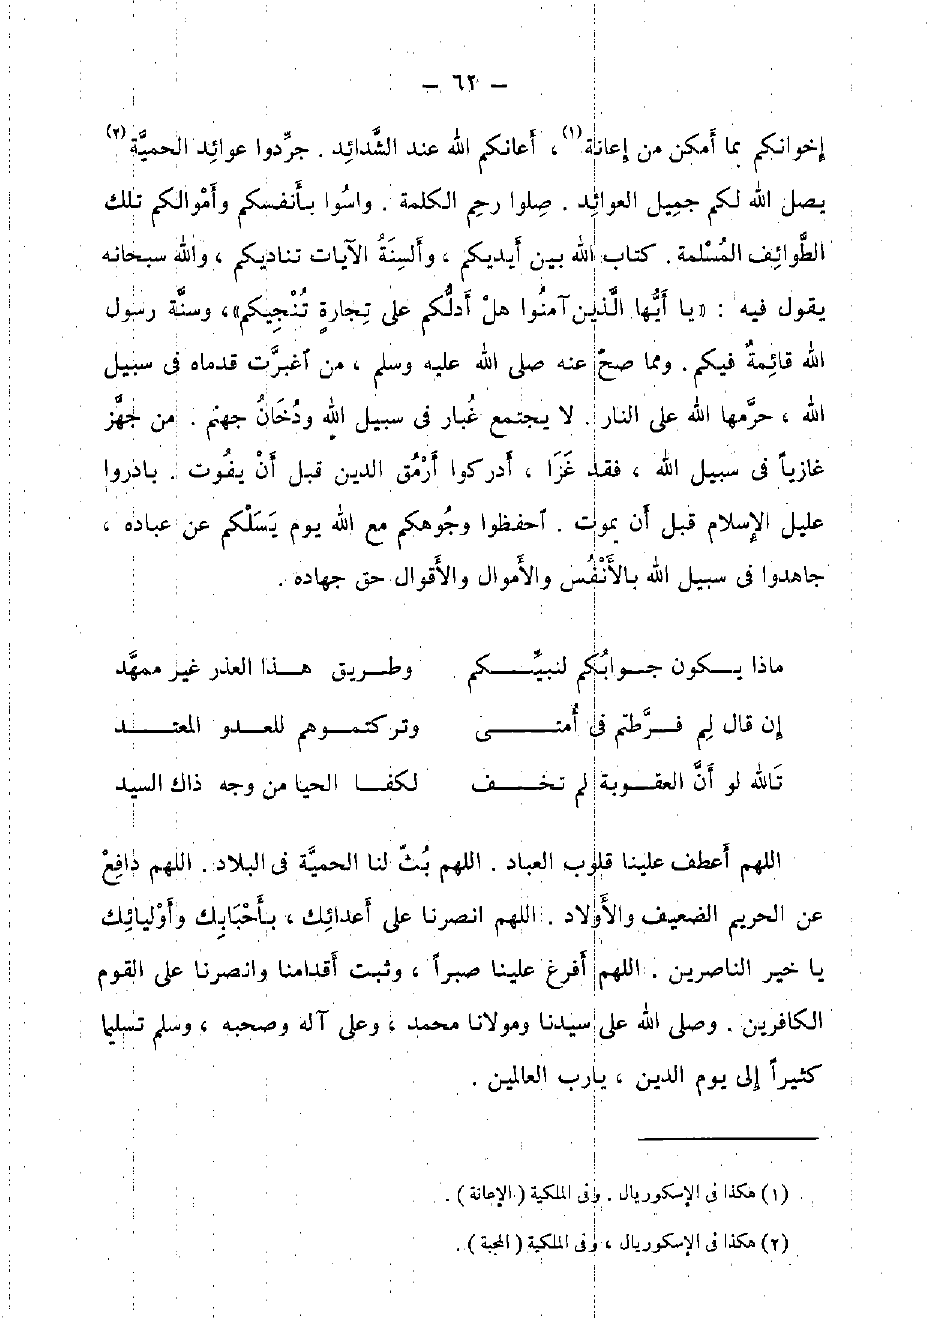 — ٦٢ —
إخوانكم بما أَمكن من إعانة(١) ، أَعانكم الله عند الشَّدائد . جرِّدوا عوائد الحميَّة(٢)
يصل الله لكم جميل العوائد . صِلوا رحِم الكلمة . واسُوا بأَنفسكم وأَمْوالكم تلك
الطَّوائِف المُسْلمة . كتاب الله بين أَيديكم ، وأَلسِنَةُ الآيات تناديكم ، والله سبحانه
يقول فيه : «يا أَيُّها الَّذين آمنُوا هلْ أَدلُّكم على تِجارةٍ تُنْجِيكم»، وسنَّة رسول
الله قائِمةٌ فيكم . ومما صحَّ عنه صلى الله عليه وسلم ، من آغبرَّت قدماه فى سبيل
الله ، حرَّمها الله على النار . لا يجتمع غُبار فى سبيل الله ودُخَانُ جهنم . من جهَّز
غازياً فى سبيل الله ، فقد غَزَا ، أَدركوا أَرْمُق الدين قبل أَنْ يفُوت . بادروا
عليل الإسلام قبل أَن يموت . آحفظوا وجُوهكم مع الله يوم يَسَلْكم عن عباده ،
جاهدوا فى سبيل الله بالأَنْفُس والأَموال والأَقوال حق جهاده .
ماذا يكون جوابُكم لنبيِّكم وطريق هذا العذر غير ممهَّد
إن قال لِم فرَّطتم فى أُمتى وتركتموهم للعدو المعتد
تَالله لو أَنَّ العقوبة لم تخف لكفا الحيا من وجه ذاك السيد
اللهم أَعطف علينا قلوب العباد . اللهم بُثّ لنا الحميَّة فى البلاد . اللهم دَافِعْ
عن الحريم الضعيف والأَولاد . اللهم انصرنا على أَعدائِك ، بأَحْبَابِك وأَوْليائِك
يا خير الناصرين . اللهم أَفرغ علينا صبراً ، وثبت أَقدامنا وانصرنا على القوم
الكافرين . وصلى الله على سيدنا ومولانا محمد ، وعلى آله وصحبه ، وسلم تسليما
كثيراً إلى يوم الدين ، يارب العالمين .
(١) هكذا فى الإسكوريال . وفى الملكية ( الإعانة ) .
(٢) هكذا فى الإسكوريال ، وفى الملكية ( المحبة ) .